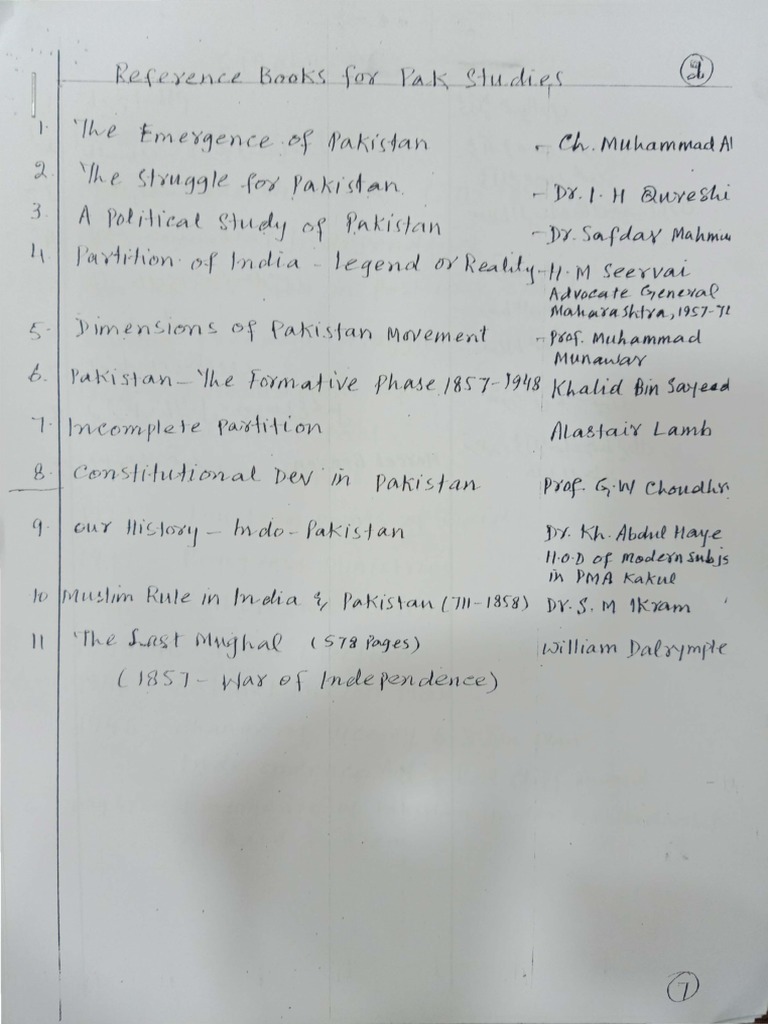 Reference Books for Pak Studies
2
1. The Emergence of Pakistan - Ch. Muhammad Al
2. The Struggle for Pakistan. - Dr. I. H Qureshi
3. A Political Study of Pakistan - Dr. Safdar Mahmu
4. Partition of India - Legend or Reality - H. M Seervai
Advocate General
Maharashtra, 1957-7
5. Dimensions of Pakistan Movement - Prof. Muhammad
Munawar
6. Pakistan - The Formative Phase 1857-1948 Khalid Bin Sayeed
7. Incomplete Partition Alastair Lamb
8. Constitutional Dev in Pakistan Prof. G.W Choudhr
9. Our History - Indo-Pakistan Dr. Kh. Abdul Haye
H.O.D of Modern Subjs
in PMA Kakul
10 Muslim Rule in India & Pakistan (711-1858) Dr. S. M Ikram
11 The Last Mughal (578 Pages) William Dalrymple
(1857 - War of Independence)
7